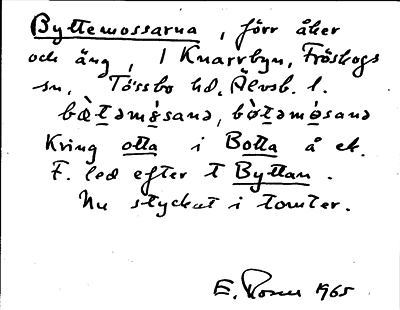 Byttemossarna, förr åker
och äng, i Knarrbyn, Fröskogs
sn, Tössbo hd, Älvsb. l.
Kring otta i Botta å et.
F. led efter t Byttan.
Nu styckat i tomter.
E. Rosen 1965